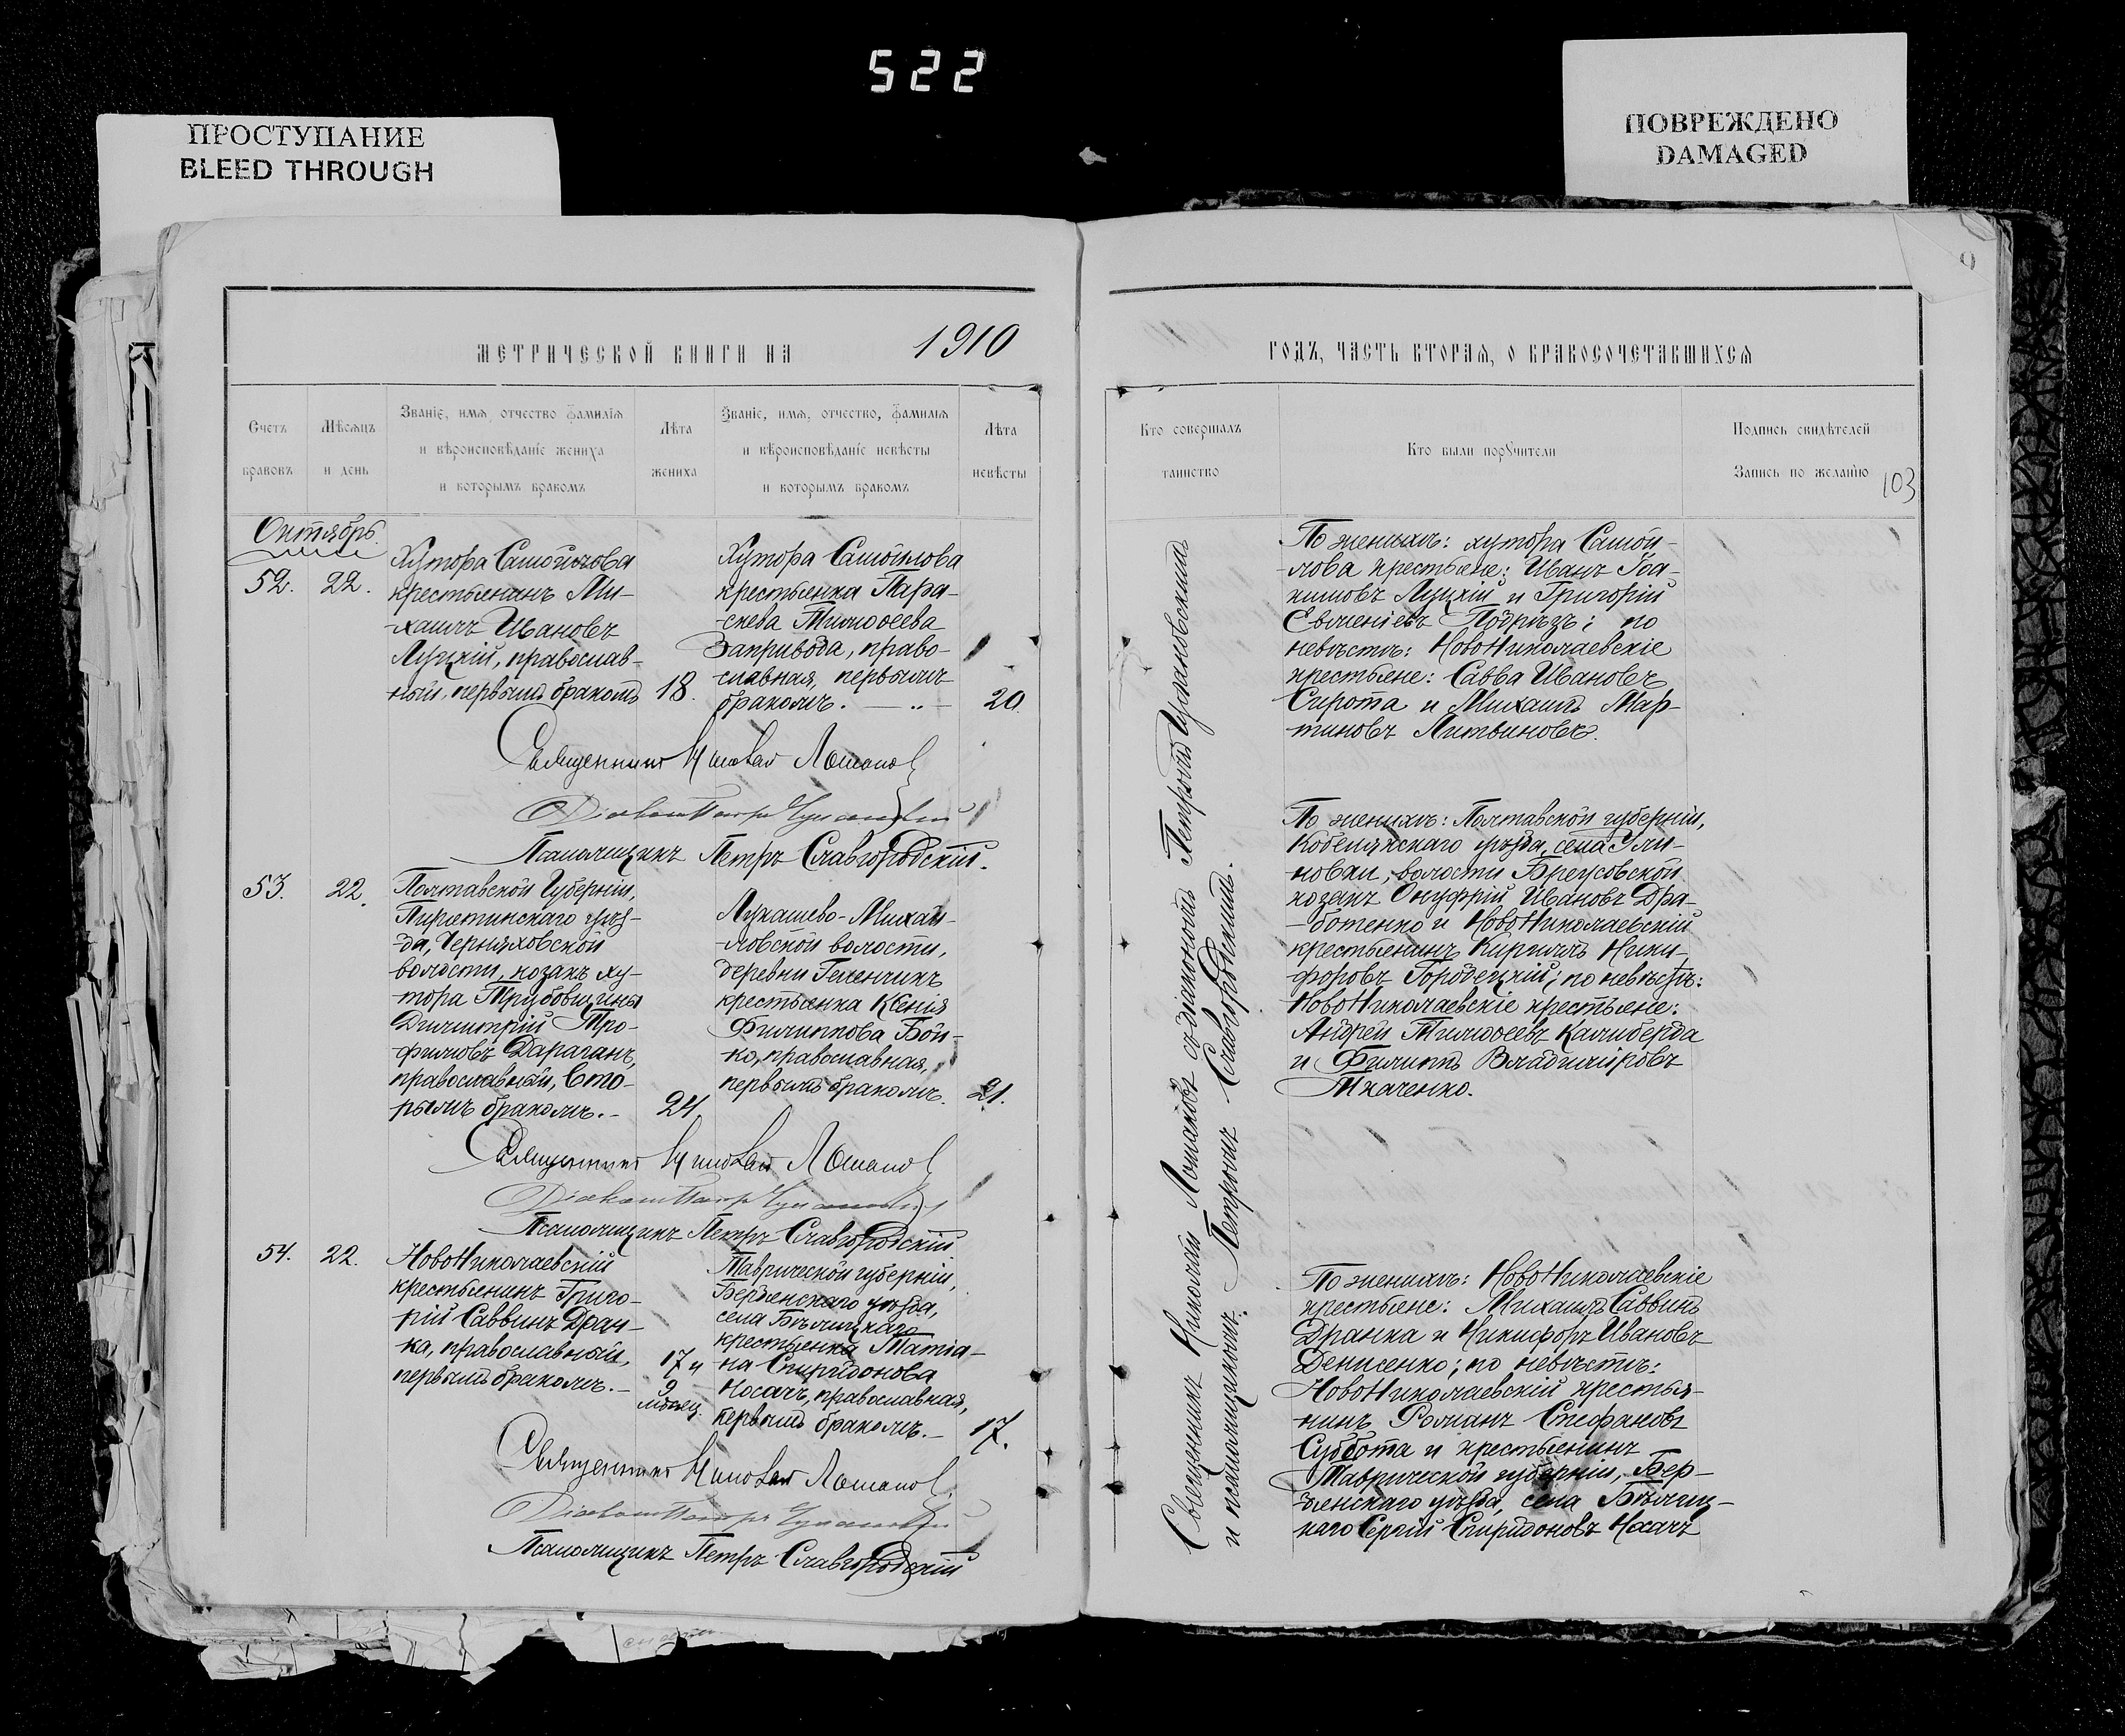 522
ПРОСТУПАНИЕ
BLEED THROUGH
ПОВРЕЖДЕНО
DAMAGED
МЕТРИЧЕСКОЙ КНИГИ НА 1910
Счетъ браковъ
Мѣсяцъ и день
Званіе, имя, отчество фамилія
и вѣроисповѣданіе жениха
и которымъ бракомъ
Лѣта жениха
Званіе, имя, отчество, фамилія
и вѣроисповѣданіе невѣсты
и которымъ бракомъ
Лѣта невѣсты
Октябрь
52. 22.
Хутора Самойлова
крестьянинъ Ми-
-хаилъ Ивановъ
Луцкій, православ-
ный, первымъ бракомъ
18.
Хутора Самойлова
крестьянка Пара-
-скева Тимофеева
Запривода, право-
славная, первымъ
бракомъ.
20
Священникъ Николай Ломаковъ
Діаконъ Петръ
Псаломщикъ Петръ Славгородскій.
53. 22.
Полтавской Губерніи,
Пирятинскаго уѣз-
-да, Черняховской
волости, козакъ ху-
тора Трубовщины
Димитрій Тро-
-фимовъ Дараганъ,
православный, вто-
рымъ бракомъ.
24
Лукашево-Михай-
-ловской волости,
деревни Геленчикъ
крестьянка Ксенія
Филиппова Бой-
-ко, православная,
первымъ бракомъ.
21.
Священникъ Николай Ломаковъ
Діаконъ Петръ
Псаломщикъ Петръ Славгородскій
54. 22.
НовоНиколаевскій
крестьянинъ Григо-
рій Саввинъ Дран-
-ка, православный,
первымъ бракомъ.
17 и
9
мѣсяц.
Таврической губерніи,
Бердянскаго уѣзда,
села Бѣлицкаго
крестьянка Татіа-
-на Спиридонова
Носачъ, православная,
первымъ бракомъ.
17.
Священникъ Николай Ломаковъ
Діаконъ Петръ
Псаломщикъ Петръ Славгородскій
ГОДЪ, ЧАСТЬ ВТОРАЯ, О БРАКОСОЧЕТАВШИХСЯ
Кто совершалъ
таинство
Кто были поручители
Подпись свидѣтелей
Запись по желанію
103
Священникъ Николай Ломаковъ съ діакономъ Петромъ
и псаломщикомъ Петромъ Славгородскимъ.
По женихѣ: хутора Самой-
-лова крестьяне: Иванъ Іоа-
кимовъ Луцкій и Григорій
Евгеніевъ Подрѣзъ; по
невѣстѣ: НовоНиколаевскіе
крестьяне: Савва Ивановъ
Сирота и Михаилъ Мар-
тиновъ Литвиновъ.
По женихѣ: Полтавской губерніи,
Кобелякскаго уѣзда, села Ули-
-новки, волости Бреусовской
козакъ Онуфрій Ивановъ Дра-
-ботенко и НовоНиколаевскій
крестьянинъ Кириллъ Ники-
форовъ Городецкій; по невѣстѣ:
НовоНиколаевскіе крестьяне:
Андрей Тимофеевъ Калиберда
и Филиппъ Владиміровъ
Ткаченко.
По женихѣ: НовоНиколаевскіе
крестьяне: Михаилъ Саввинъ
Дранка и Никифоръ Ивановъ
Денисенко; по невѣстѣ:
НовоНиколаевскій крестья-
нинъ Романъ Стефановъ
Суббота и крестьянинъ
Таврической губерніи, Бер-
-дянскаго уѣзда, села Бѣлиц-
каго Сергій Спиридоновъ Носачъ